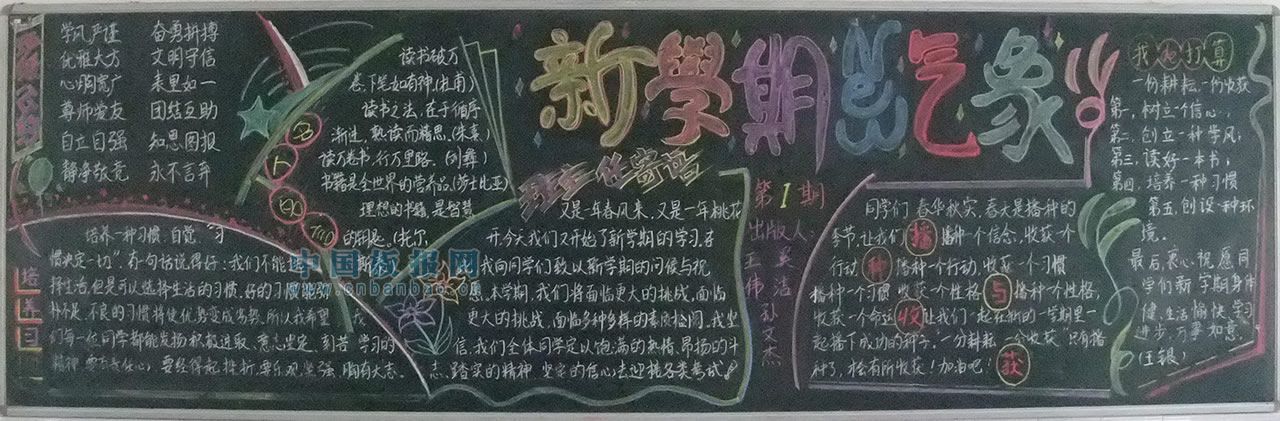 学风严谨 奋勇拼搏
优雅大方 文明守信
心胸宽广 表里如一
尊师爱友 团结互助
自立自强 知恩图报
静净敬竞 永不言弃
培养一种习惯:自觉 习
惯决定一切”有句话说得好:我们不能
择生活,但是可以选择生活的习惯,好的习惯能弥
补不足,不良的习惯将使优势变成劣势。所以我希望 我
们每一位同学都能发扬积极进取、意志坚定、刻苦 学习的
精神,要有责任心,要经得起挫折,要乐观坚强,胸有大志。
培
养
习
名
人
读书破万
卷,下笔如有神(杜甫)
读书之法,在于循序
渐进,熟读而精思。(朱熹)
读万卷书,行万里路。(刘彝)
书籍是全世界的营养品。(莎士比亚)
理想的书籍,是智慧
的钥匙。(托尔
中国板报网
cnbanbao.cn
新學期 NEW 气象
班主任寄语
又是一年春风来,又是一年桃花
开,今天我们又开始了新学期的学习,在
我向同学们致以新学期的问候与祝
愿。本学期,我们将面临更大的挑战,面临
更大的挑战,面临多种多样的素质检阅。我坚
信,我们全体同学定以饱满的热情、昂扬的斗
志、踏实的精神、坚定的信心去迎接各类考试。
第1期
出版人:
王英
伟洁
孙文杰
同学们 春华秋实,春天是播种的
季节,让我们播 播种一个信念,收获一个
行动 种 播种一个行动,收获一个习惯
播种一个习惯 收获一个性格 与 播种一个性格,
收获一个命运 收 让我们一起在新的一学期里一
起播下成功的种子,一分耕耘 一分收获 只有播
种了,才会有所收获!加油吧! 获
我 打算
一份耕耘,一份收获
第一,树立一个信心,
第二,创立一种学风;
第三,读好一本书;
第四,培养一种习惯
第五,创设一种环
境。
最后,衷心祝愿同
学们新学期身体
健,生活愉快,学习
进步,万事如意。
(王银)